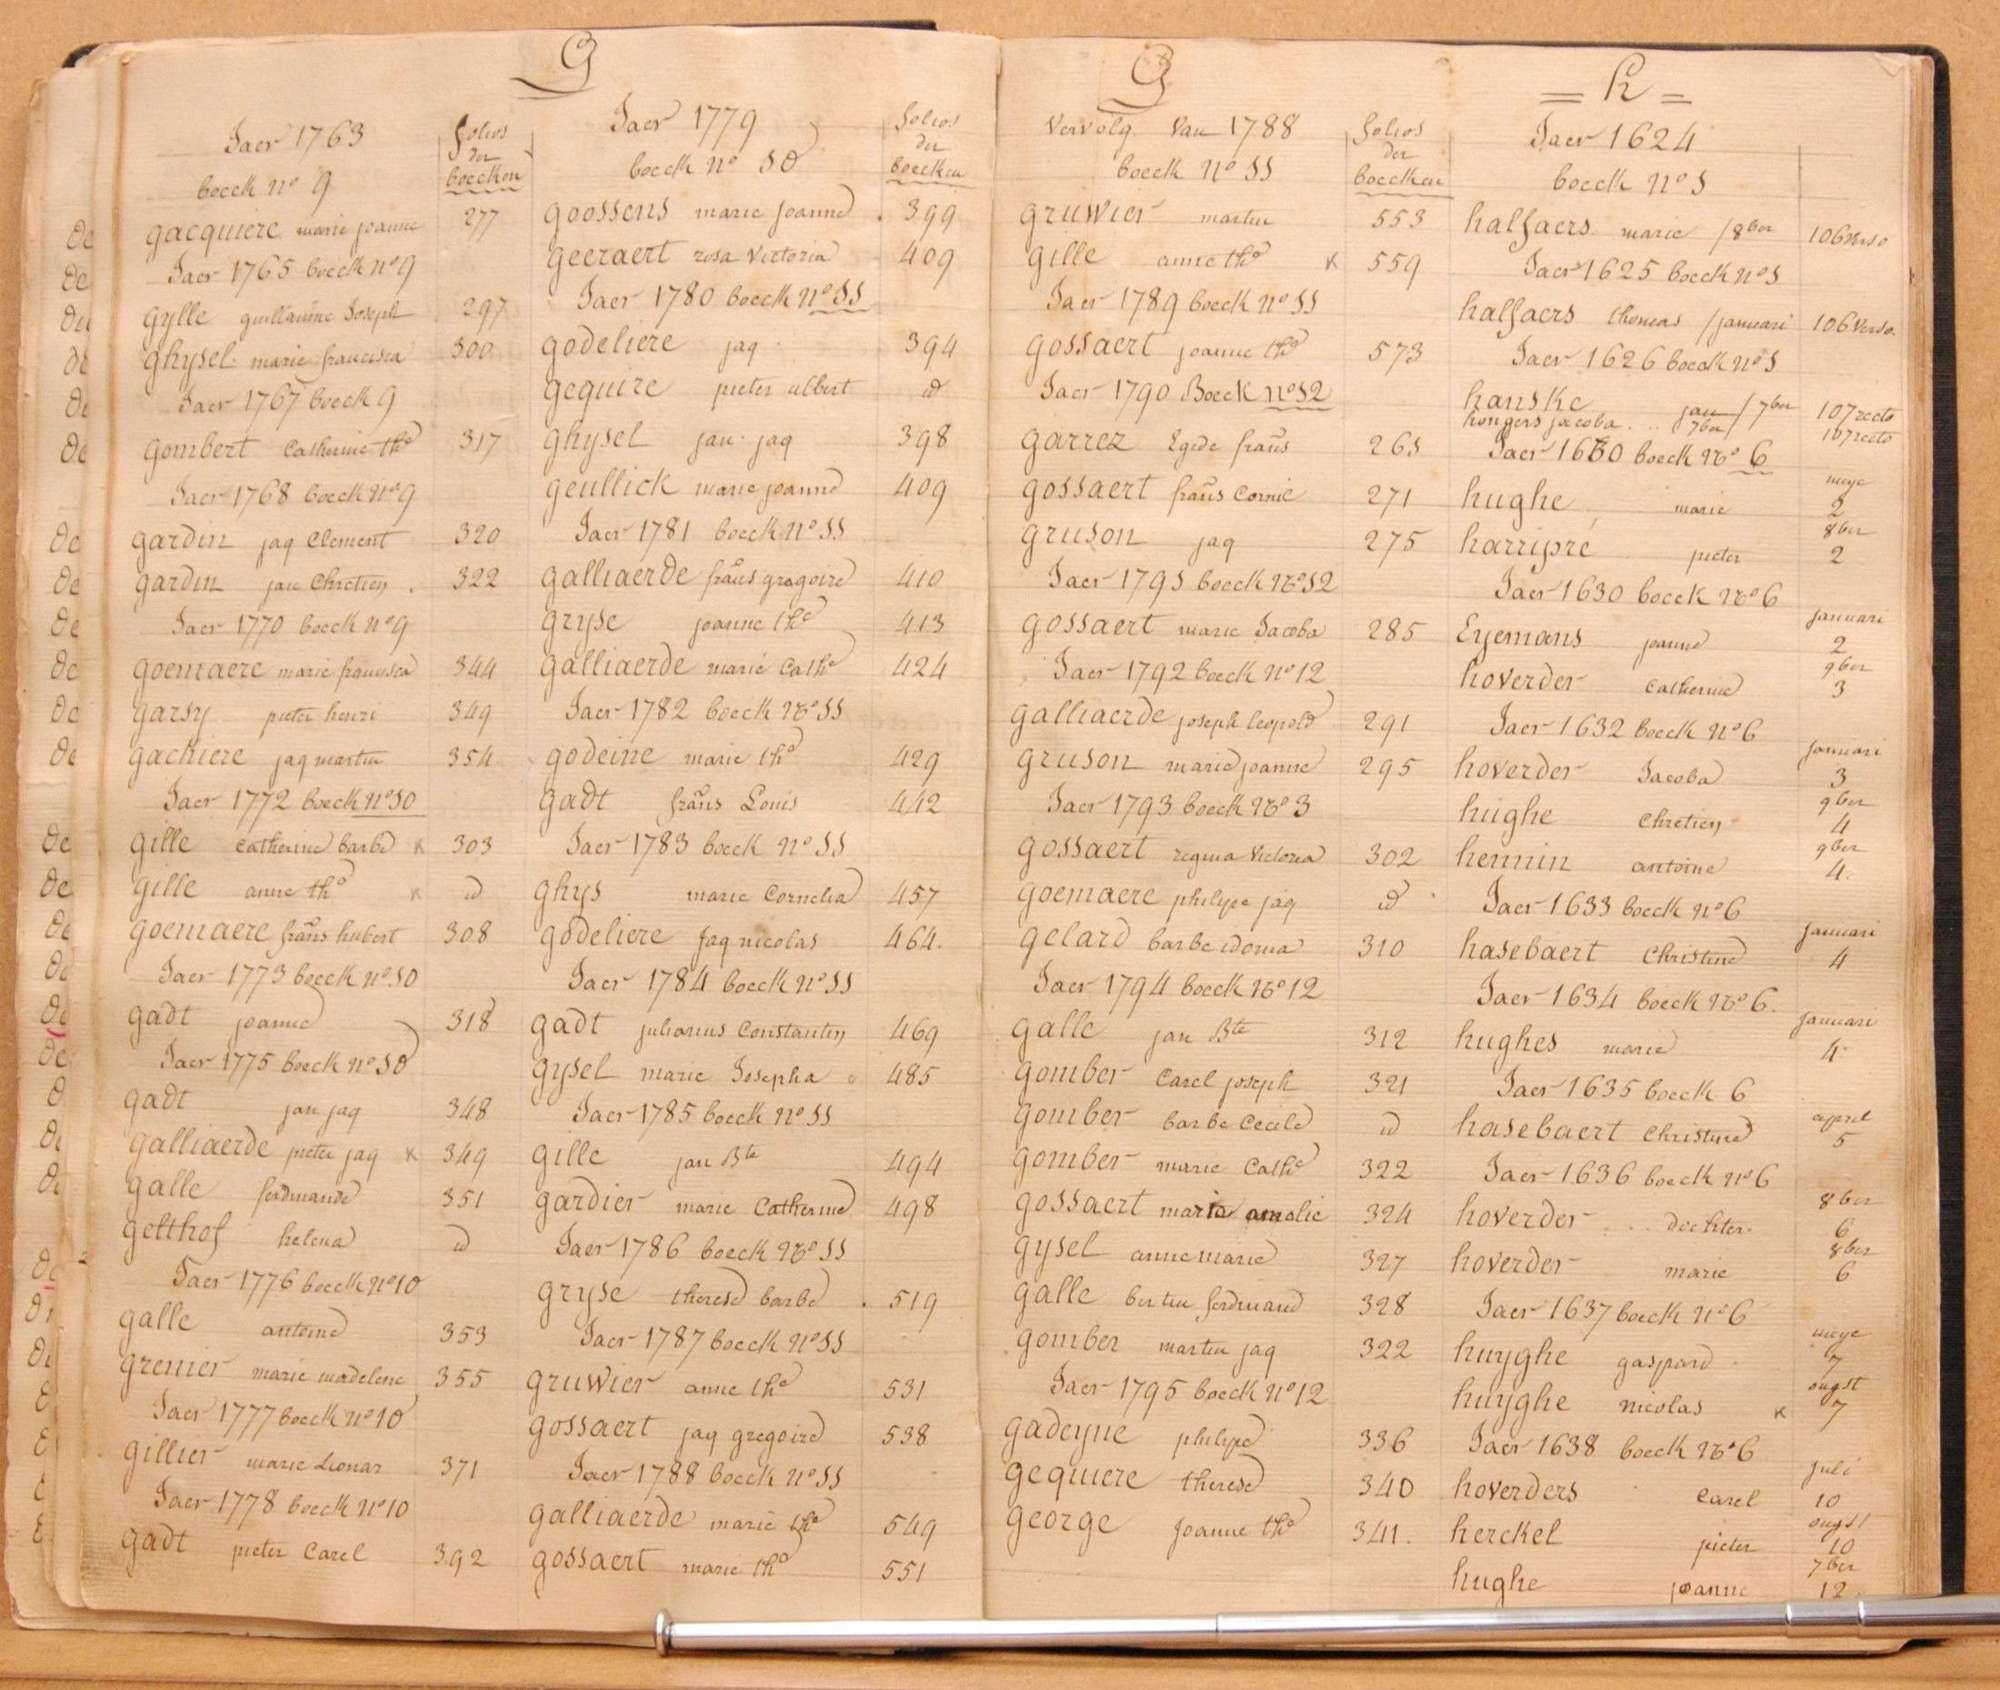 G
Jaer 1763
folios
der
boecken
boeck no 9
gacquiere marie joanne 277
Jaer 1765 boeck no 9
gylle guillaume Joseph 297
ghysel marie francisca 300
Jaer 1767 boeck 9
gombert Catherine the 317
Jaer 1768 boeck no 9
gardin jaq Clement 320
gardin jan Chretien . 322
Jaer 1770 boeck no 9
goemaere marie francisca 344
garsy pieter henri 349
gachiere jaq martin 354
Jaer 1772 boeck no 10
gille catherine barbe K 303
gille anne the K id
goemaere frans hubert 308
Jaer 1773 boeck no 10
gadt joanne 318
Jaer 1775 boeck no 10
gadt jan jaq 348
galliaerde pieter jaq K 349
galle ferdinande 351
gelthof helena id
Jaer 1776 boeck no 10
galle antoine 353
grenier marie madelene 355
Jaer 1777 boeck no 10
gillier marie Lionar 371
Jaer 1778 boeck no 10
gadt pieter Carel 392
Jaer 1779
folios
der
boecken
boeck no 10
goossens marie Joanne . 399
geeraert rosa Victoria 409
Jaer 1780 boeck no 11
godeliere jaq 394
gequire pieter albert id
ghysel jan jaq 398
geullick marie joanne 409
Jaer 1781 boeck no 11
galliaerde frans gregoire 410
gryse joanne the 413
galliaerde marie Cathe 424
Jaer 1782 boeck no 11
godeine marie the 429
gadt frans Louis 442
Jaer 1783 boeck no 11
ghys marie Cornelia 457
godeliere Jaq nicolas 464.
Jaer 1784 boeck no 11
gadt julianus Constantin 469
gysel marie Josepha 485
Jaer 1785 boeck no 11
gille jan Bte 494
gardier marie Catherine 498
Jaer 1786 boeck no 11
gryse therese barbe . 519
Jaer 1787 boeck no 11
gruwier anne the 531
gossaert jaq gregoire 538
Jaer 1788 boeck no 11
galliaerde marie the 549
gossaert marie the 551
G
Vervolg Van 1788
folios
der
boecken
boeck no 11
gruwier martin 553
gille anne the K 559
Jaer 1789 boeck no 11
gossaert joanne the 573
Jaer 1790 Boeck no 12
garrez Egide frans 263
gossaert frans Cornie 271
gruson jaq 275
Jaer 1791 boeck no 12
gossaert marie Jacoba 285
Jaer 1792 boeck no 12
galliaerde joseph leopold 291
gruson marie joanne 295
Jaer 1793 boeck no 3
gossaert regina Victoria 302
goemaere philype jaq id
gelard barbe idonia 310
Jaer 1794 boeck no 12
galle jan Bte 312
gomber Carel joseph 321
gomber barbe Cecile id
gomber marie Cathe 322
gossaert marie amelie 324
gysel anne marie 327
galle bertin ferdinand 328
gomber martin jaq 322
Jaer 1795 boeck no 12
gadeyne philype 336
gequiere therese 340
george Joanne the 341.
= h =
Jaer 1624
boeck no 1
halfaers marie / 8ber 106 verso
Jaer 1625 boeck no 1
halfaers thomas / januari 106 verso
Jaer 1626 boeck no 1
hanske jan / 7ber 107 recto
hongers jacoba .. 7ber 107 recto
Jaer 1630 boeck no 6
meye
hughe marie 2
8ber
harripre pieter 2
Jaer 1630 boeck no 6
januari
Eyemans joanne 2
9ber
hoverder Catherine 3
Jaer 1632 boeck no 6
januari
hoverder Jacoba 3
9ber
hughe Chretien 4
9ber
hennin antoine 4.
Jaer 1633 boeck no 6
januari
hasebaert Christine 4
Jaer 1634 boeck no 6.
januari
hughes marie 4
Jaer 1635 boeck 6
april
hasebaert Christine 5
Jaer 1636 boeck no 6
8ber
hoverder .. dochter 6
8ber
hoverder marie 6
Jaer 1637 boeck no 6
meye
huyghe gaspard 7
ougst
huyghe nicolas K 7
Jaer 1638 boeck no 6
juli
hoverders Carel 10
ougst
herckel pieter 10
7ber
hughe joanne 12